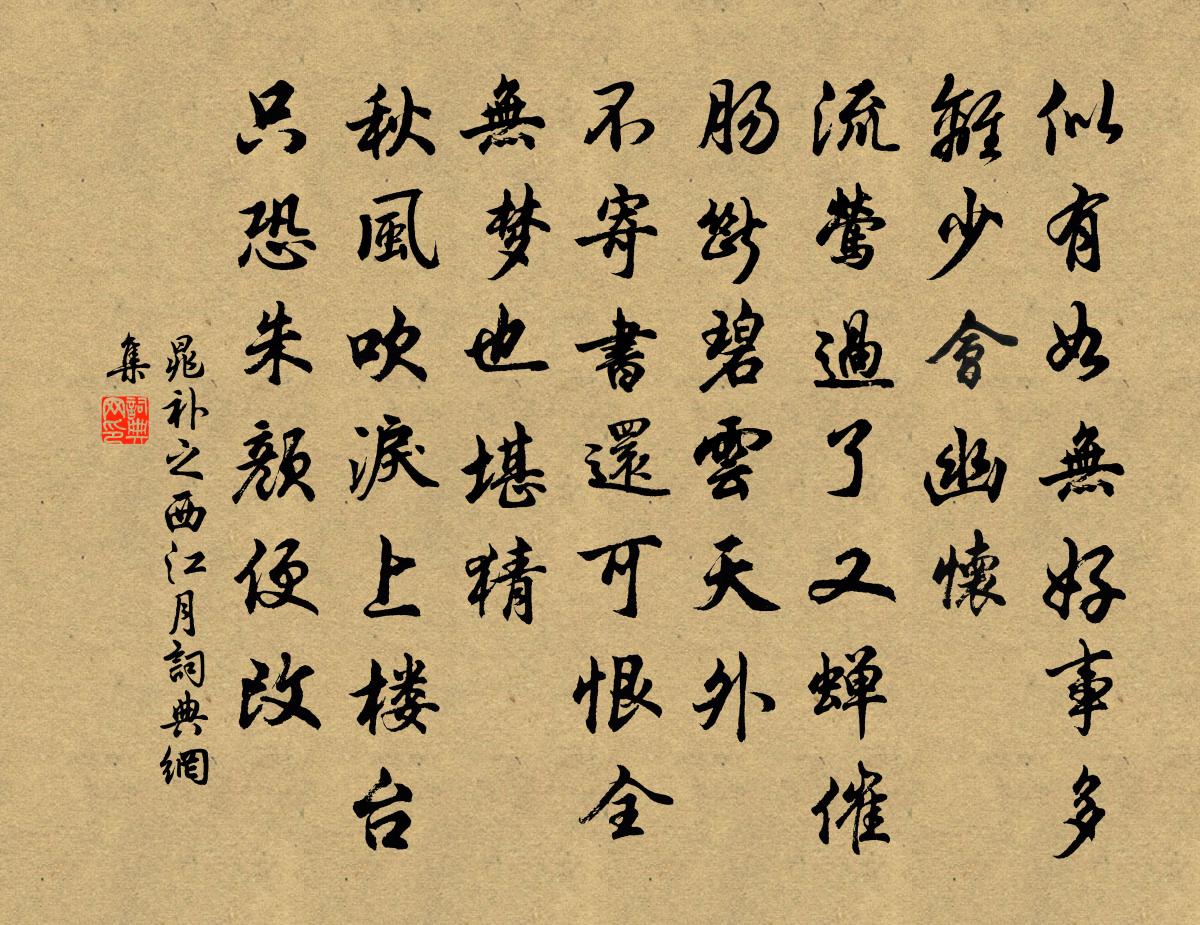 似有如無好事多
離少會幽懷
流莺過了又蝉催
肠斷碧雲天外
不寄書還可恨全
無梦也堪猜
秋風吹淚上楼台
只恐朱顏便改
晁补之西江月詞典網
集
詞典网印